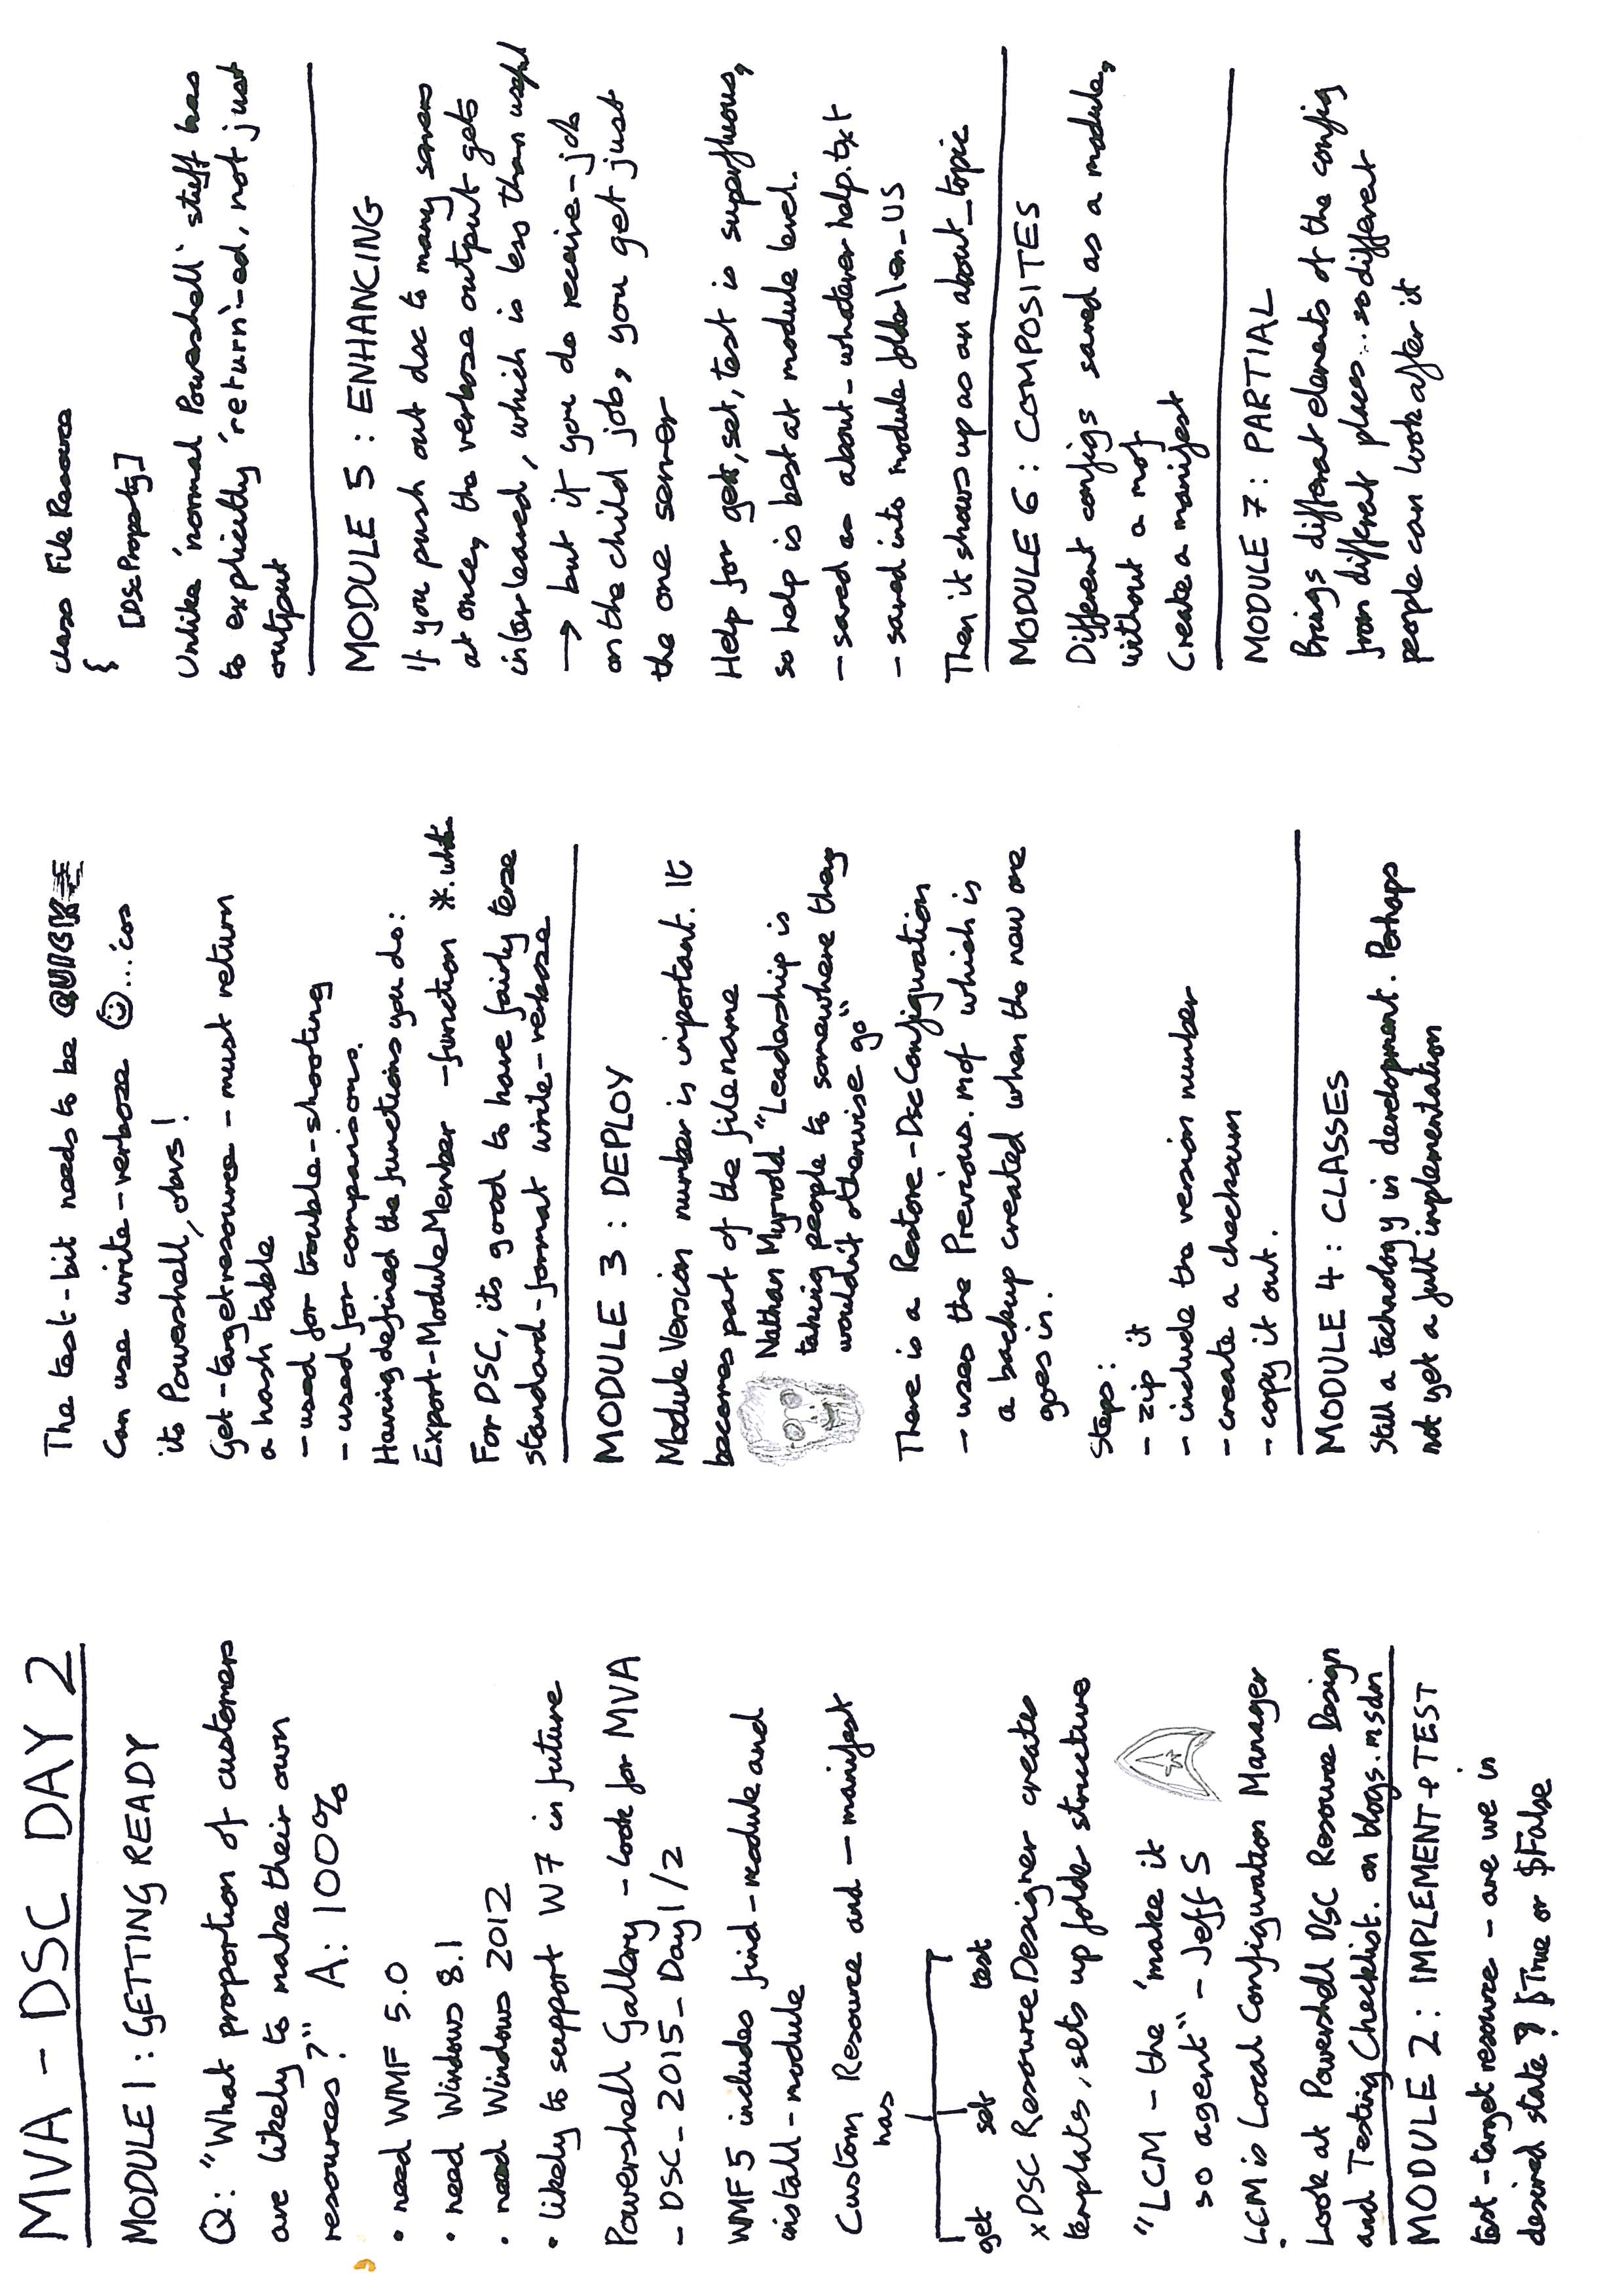 MVA - DSC DAY 2
MODULE 1 : GETTING READY
Q: "What proportion of customers
are likely to make their own
resources?" A: 100%
• need WMF 5.0
• need Windows 8.1
• need Windows 2012
• likely to support W7 in future
Powershell Gallery - look for MVA
_ DSC _ 2015 _ Day1/2
WMF 5 includes find-module and
install-module
Custom Resource and - manifest
has
get set test
xDSC Resource Designer creates
template, sets up folder structure
"LCM - the 'make it
so agent" - Jeff S
LCM is Local Configuration Manager
Look at Powershell DSC Resource Design
and Testing Checklist. on blogs.msdn
MODULE 2 : IMPLEMENT + TEST
test-target resource - are we in
desired state? $True or $False
The test-bit needs to be QUICK
Can use write-verbose ☺...'cos
its Powershell, obvs!
Get-targetresource - must return
a hash table
- used for trouble-shooting
- used for comparisons.
Having defined the functions you do:
Export-ModuleMember -function *.
For DSC, its good to have fairly terse
standard-format write-verbose
MODULE 3 : DEPLOY
Module Version number is important. It
becomes part of the filename
Nathan Myrvold "Leadership is
taking people to somewhere they
wouldn't otherwise go"
There is a Restore-DscConfiguration
- uses the Previous.mof which is
a backup created when the new one
goes in.
Steps:
- zip it
- include the version number
- create a checksum
- copy it out.
MODULE 4 : CLASSES
Still a technology in development. Perhaps
not yet a full implementation
class FileResource
{
[DscProperty]
Unlike 'normal Powershell' stuff has
to explicitly 'return'-ed, not just
output
MODULE 5 : ENHANCING
If you push out dsc to many servers
at once, the verbose output gets
interleaved, which is less than useful
→ but if you do receive-job
on the child job, you get just
the one server
Help for get, set, test is superfluous,
so help is best at module level.
- saved as about_whatever help.txt
- saved into module folder\en_US
Then it shows up as an about_topic
MODULE 6 : COMPOSITES
Different configs saved as a module,
without a mof
Create a manifest
MODULE 7 : PARTIAL
Brings different elements of the config
from different places... so different
people can look after it